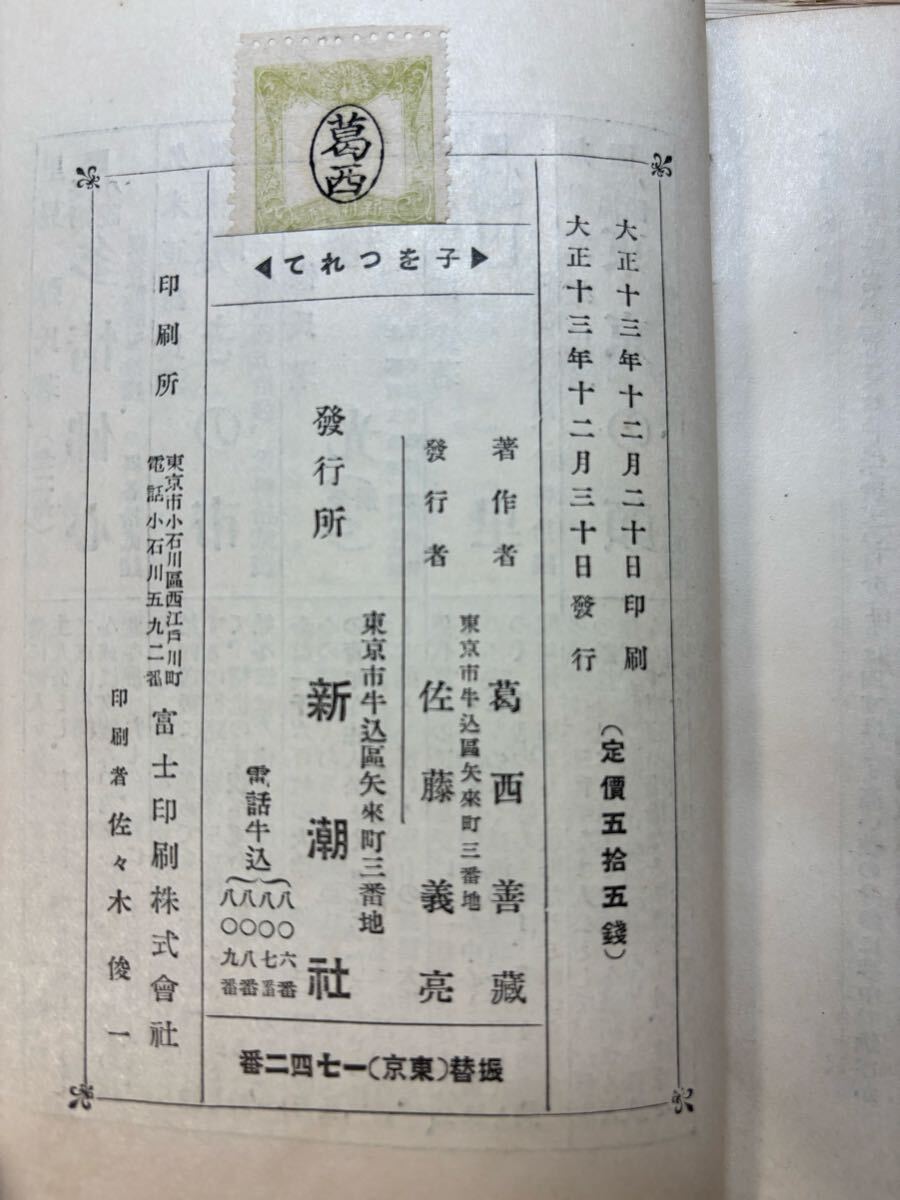 葛西
大正十三年十二月二十日印刷
大正十三年十二月三十日發行
(定價五拾五錢)
子をつれて
著作者 葛西善藏
東京市牛込區矢來町三番地
發行者 佐藤義亮
東京市牛込區矢來町三番地
發行所 新潮社
電話牛込
八〇六番
八〇七番
八〇八番
八〇九番
振替(東京)一七四二番
印刷所
東京市小石川區西江戸川町
電話小石川五九二番
富士印刷株式會社
印刷者 佐々木俊一